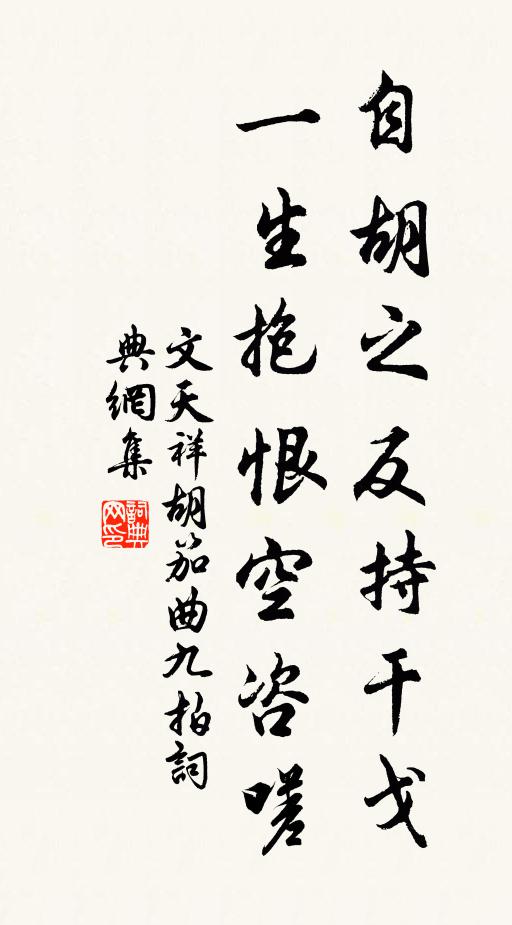 自胡之反持干戈
一生抱恨空咨嗟
文天祥胡笳曲九拍詞
典網集
詞典
网印